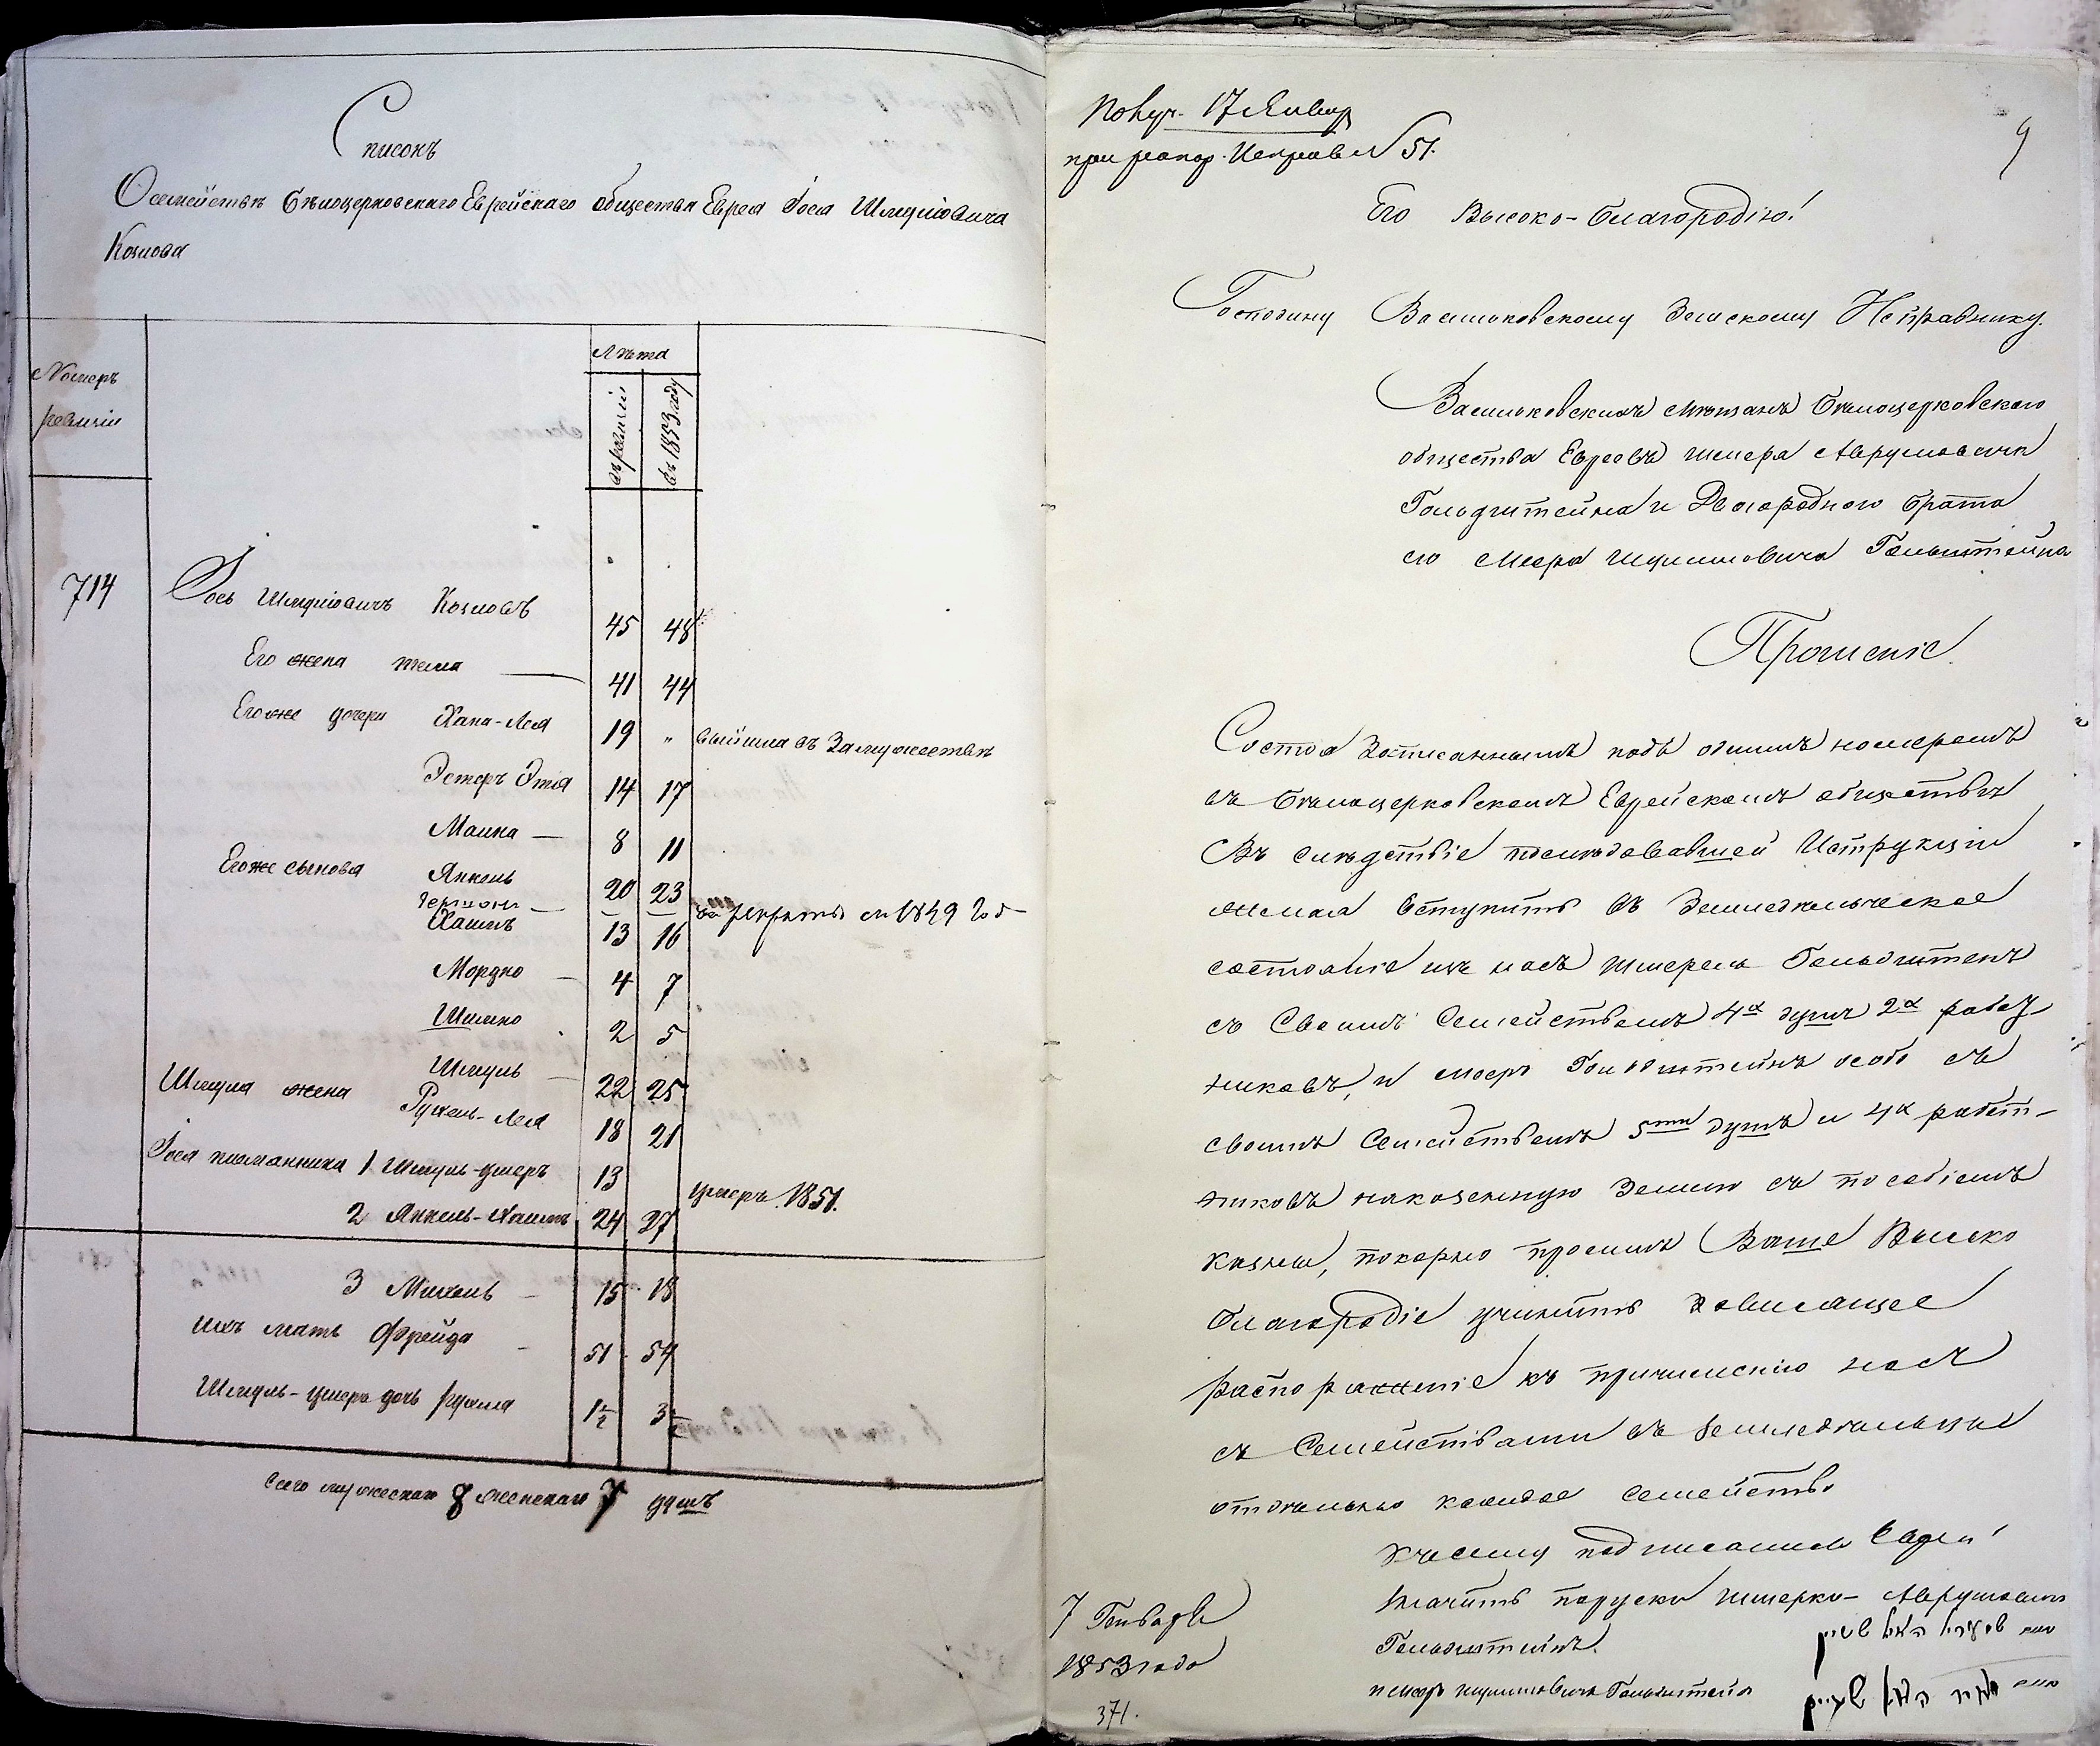 Списокъ
О семействѣ Бѣлоцерковскаго Еврейскаго общества Еврея Іося Шмулiовича
Козлова
Номеръ
ревизіи
Лѣта
въ ревизіи
въ 1853 году
714
Іось Шмулiовичъ Козловъ 45 48
Его жена 41 44
Его же дочери Хана-Лея 19 " вышла въ Замужество
Эстеръ Этя 14 17
Малка — 8 11
Его же сынова Янкель 20 23
Гершонъ — въ рекруты въ 1849 год
Хаимъ 13 16
Мордко — 4 7
Шлиомо 2 5
Шмуль — 22 25
Шмуля жена Рухель-Лея 18 21
Іося племянники 1 Шмуль-Умеръ 13 умеръ 1851.
2 Янкель-Хаимъ 24 27
3 Михель — 15 18
ихъ мать Фрейда — 51 54
Шмуль-Умера дочь Рухля 1½ 3½
Всего мужескаго 8 женскаго 7 душъ
Получ. 17 Января
при рапор. Исправ. N 51.
9
Его Высоко-благородію!
Господину Васильковскому Земскому Исправнику.
Васильковскихъ мѣщанъ Бѣлоцерковского
общества Евреевъ Шмера Аврумовича
Гольдштейна и Двоюродного брата
его Меера Гольштейна
Прошеніе.
Состоя Записаннымъ подъ однимъ номеромъ
въ Бѣлоцерковскомъ Еврейскомъ обществѣ
Въ слѣдствіе послѣдовавшей Иструкціи
желая вступить въ Земледѣльческое
состояніе изъ насъ Шмерель Гольдштенъ
съ Своимъ Семействомъ 4х душъ 2х работ-
никовъ, и Мееръ Гольдштейнъ особо съ
своимъ Семействомъ 5ти душъ и 4х работ-
никовъ на казенную Землю съ пособіемъ
казны, покорно просимъ Ваше Высоко
благородіе учинить Зависящее
распоряженіе къ причисленію насъ
съ Семействами въ Земледѣльцы
отдѣльно каждое Семейство
Къ сему подписались Евреи
Шмерко Аврумовичъ
Гольдштейнъ.
Гольдштейн
7 Генваря
1853 года
371.